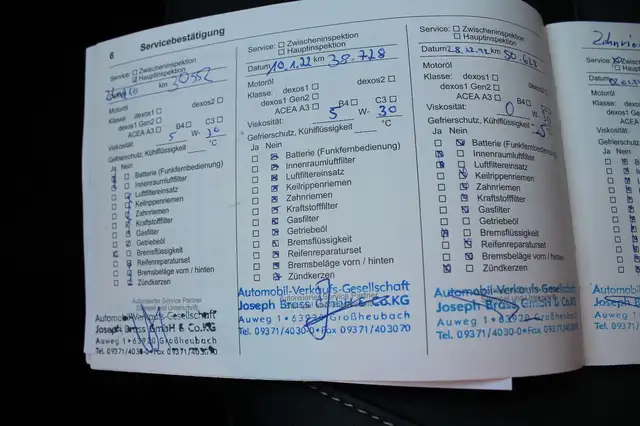 6 Servicebestätigung
Service: Zwischeninspektion
Hauptinspektion
km
Motoröl
Klasse: dexos1 dexos2
dexos1 Gen2
ACEA A3 B4 C3
Viskosität: 5 W- 30
Gefrierschutz, Kühlflüssigkeit °C
Ja Nein
Batterie (Funkfernbedienung)
Innenraumluftfilter
Luftfiltereinsatz
Keilrippenriemen
Zahnriemen
Kraftstofffilter
Gasfilter
Getriebeöl
Bremsflüssigkeit
Reifenreparaturset
Bremsbeläge vorn / hinten
Zündkerzen
Autorisierter Service Partner
Automobil-Verkaufs-Gesellschaft
Joseph Brass GmbH & Co.KG
Auweg 1 • 63920 Großheubach
Tel. 09371/4030-0 • Fax 09371/403070
Service: Zwischeninspektion
Hauptinspektion
Datum 10.1.22 km 38.728
Motoröl
Klasse: dexos1 dexos2
dexos1 Gen2
ACEA A3 B4 C3
Viskosität: 5 W- 30
Gefrierschutz, Kühlflüssigkeit °C
Ja Nein
Batterie (Funkfernbedienung)
Innenraumluftfilter
Luftfiltereinsatz
Keilrippenriemen
Zahnriemen
Kraftstofffilter
Gasfilter
Getriebeöl
Bremsflüssigkeit
Reifenreparaturset
Bremsbeläge vorn / hinten
Zündkerzen
Autorisierter Service Partner
Automobil-Verkaufs-Gesellschaft
Joseph Brass GmbH & Co.KG
Auweg 1 • 63920 Großheubach
Tel. 09371/4030-0 • Fax 09371/403070
Service: Zwischeninspektion
Hauptinspektion
Datum 28.12.22 km 50.627
Motoröl
Klasse: dexos1 dexos2
dexos1 Gen2
ACEA A3 B4
Viskosität: 0 W-
Gefrierschutz, Kühlflüssigkeit
Ja Nein
Batterie (Funkfernbedienung)
Innenraumluftfilter
Luftfiltereinsatz
Keilrippenriemen
Zahnriemen
Kraftstofffilter
Gasfilter
Getriebeöl
Bremsflüssigkeit
Reifenreparaturset
Bremsbeläge vorn / hinten
Zündkerzen
Automobil-Verkaufs-Gesellschaft
Joseph Brass GmbH & Co.KG
Auweg 1 • 63920 Großheubach
Tel. 09371/4030-0 • Fax 09371/403070
Service:
Ja Nein